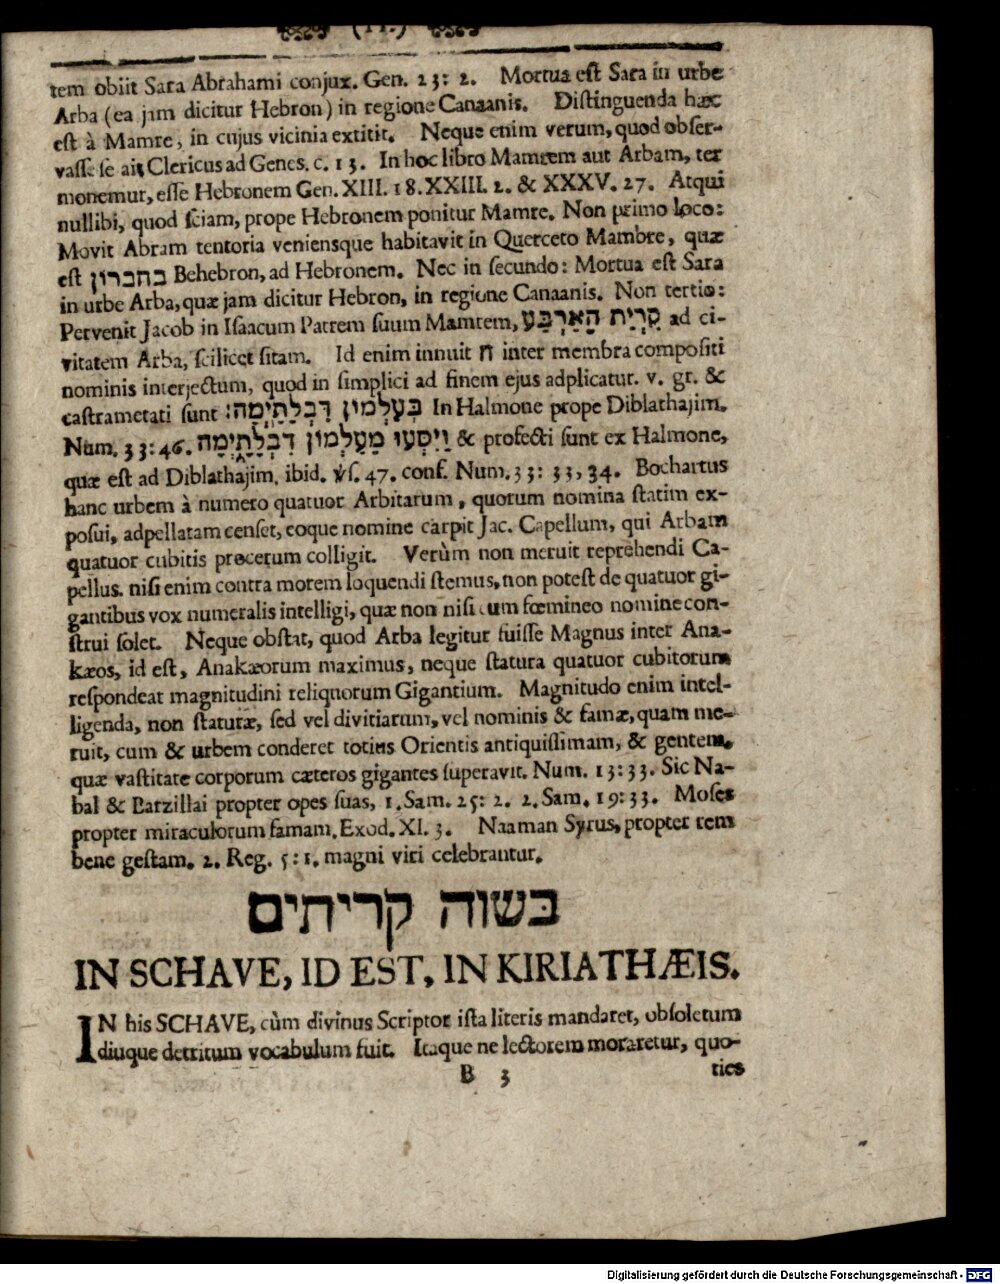 (11.)
tem obiit Sara Abrahami conjux. Gen. 23: 2. Mortua eſt Sara in urbe
Arba (ea jam dicitur Hebron) in regione Canaanis. Diſtinguenda hæc
eſt à Mamre, in cujus vicinia extitit. Neque enim verum, quod obſer-
vaſſe ſe ait Clericus ad Genes. c. 13. In hoc libro Mamrem aut Arbam, ter
monemur, eſſe Hebronem Gen. XIII. 18. XXIII. 2. & XXXV. 27. Atqui
nullibi, quod ſciam, prope Hebronem ponitur Mamre. Non primo loco:
Movit Abram tentoria veniensque habitavit in Querceto Mambre, quæ
eſt בחברון Behebron, ad Hebronem. Nec in ſecundo: Mortua eſt Sara
in urbe Arba, quæ jam dicitur Hebron, in regione Canaanis. Non tertio:
Pervenit Jacob in Iſaacum Patrem ſuum Mamrem, קִרְיַת הָאַרְבַּע ad ci-
vitatem Arba, ſcilicet ſitam. Id enim innuit ה inter membra compoſiti
nominis interjectum, quod in ſimplici ad finem ejus adplicatur. v. gr. &
caſtrametati ſunt בְּעַלְמוֹן דִּבְלָתָיְמָה: In Halmone prope Diblathajim.
Num. 33:46. וַיִּסְעוּ מֵעַלְמוֹן דִּבְלָתָיְמָה & profecti ſunt ex Halmone,
quæ eſt ad Diblathajim, ibid. ℣ſ. 47. conf. Num. 33: 33, 34. Bochartus
hanc urbem à numero quatuor Arbitarum, quorum nomina ſtatim ex-
poſui, adpellatam cenſet, eoque nomine carpit Jac. Capellum, qui Arbam
quatuor cubitis procerum colligit. Verùm non meruit reprehendi Ca-
pellus. niſi enim contra morem loquendi ſtemus, non poteſt de quatuor gi-
gantibus vox numeralis intelligi, quæ non niſi cum fœmineo nomine con-
ſtrui ſolet. Neque obſtat, quod Arba legitur fuiſſe Magnus inter Ana-
kæos, id eſt, Anakæorum maximus, neque ſtatura quatuor cubitorum
reſpondeat magnitudini reliquorum Gigantium. Magnitudo enim intel-
ligenda, non ſtaturæ, ſed vel divitiarum, vel nominis & famæ, quam me-
ruit, cum & urbem conderet totius Orientis antiquiſſimam, & gentem,
quæ vaſtitate corporum cæteros gigantes ſuperavit. Num. 13:33. Sic Na-
bal & Barzillai propter opes ſuas, 1. Sam. 25: 2. 2. Sam. 19:33. Moſes
propter miraculorum famam, Exod. XI. 3. Naaman Syrus, propter rem
bene geſtam. 2. Reg. 5:1. magni viri celebrantur.
בשוה קריתים
IN SCHAVE, ID EST, IN KIRIATHÆIS.
IN his SCHAVE, cùm divinus Scriptor iſta literis mandaret, obſoletum
diuque detritum vocabulum fuit. Itaque ne lectorem moraretur, quo-
B 3 ties
Digitalisierung gefördert durch die Deutsche Forschungsgemeinschaft - DFG